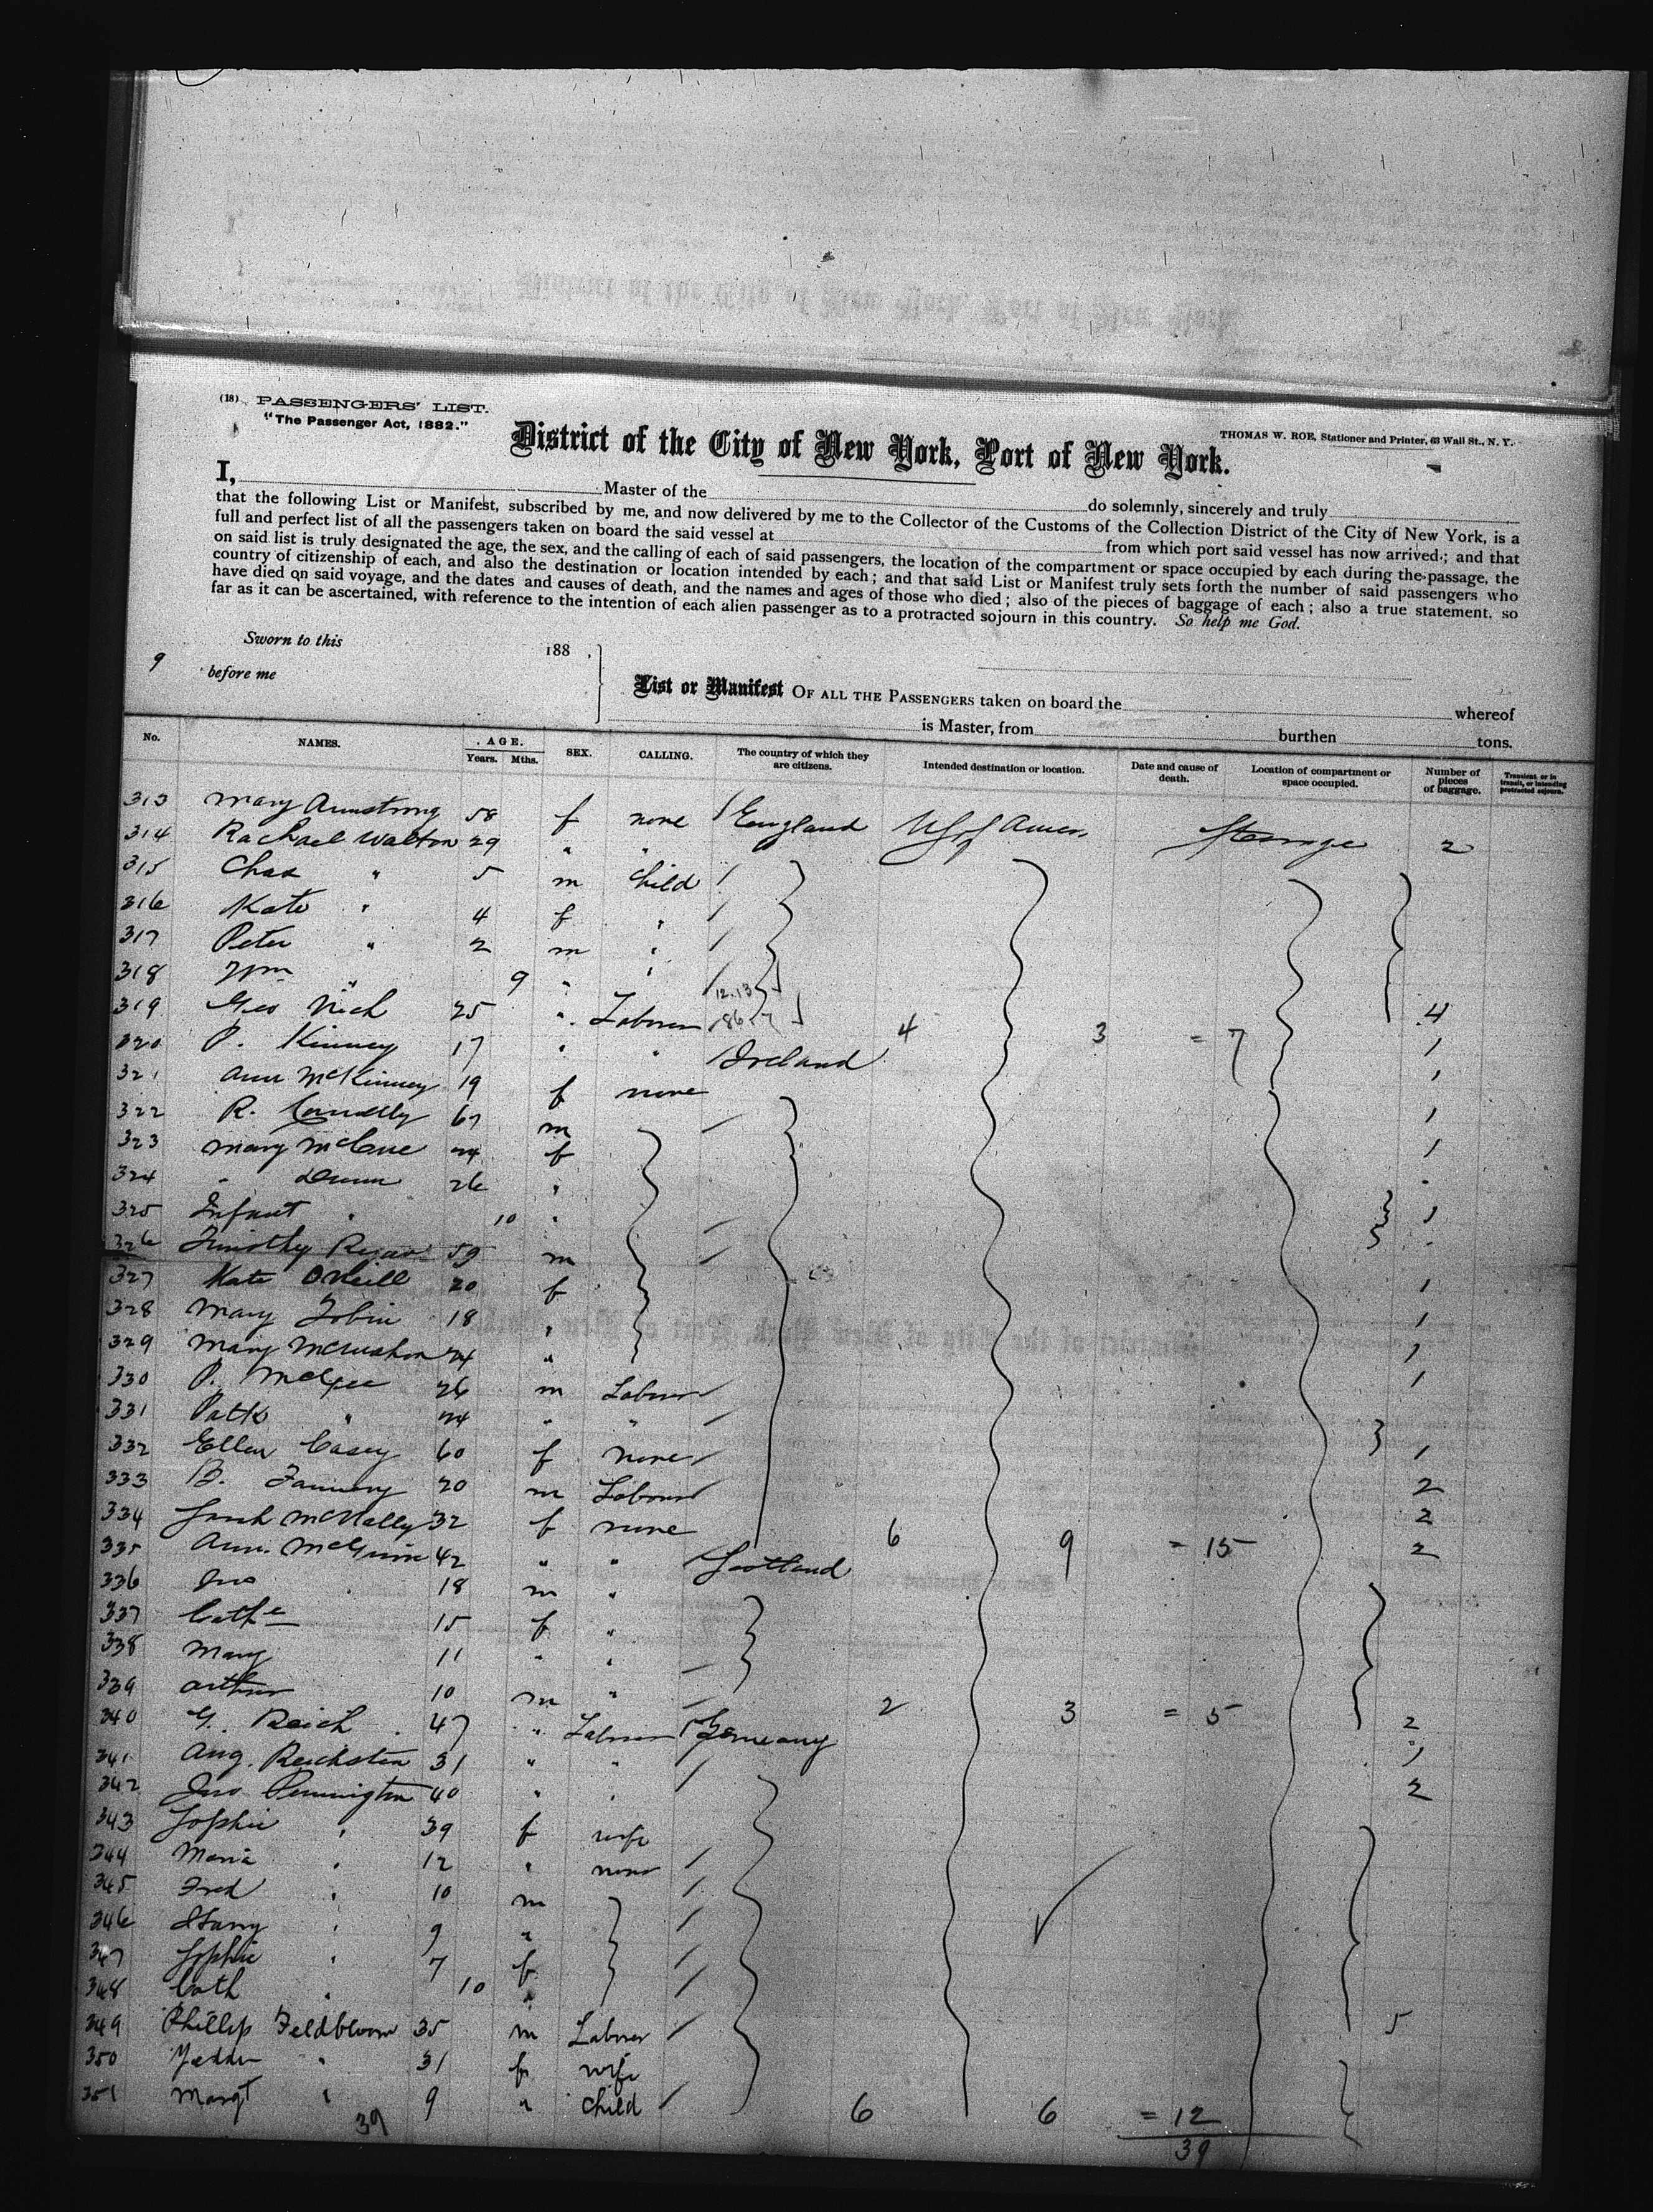 (18) PASSENGERS' LIST.
"The Passenger Act, 1882."
THOMAS W. ROE, Stationer and Printer, 63 Wall St., N. Y.
District of the City of New York, Port of New York.
I, Master of the do solemnly, sincerely and truly
that the following List or Manifest, subscribed by me, and now delivered by me to the Collector of the Customs of the Collection District of the City of New York, is a
full and perfect list of all the passengers taken on board the said vessel at from which port said vessel has now arrived; and that
on said list is truly designated the age, the sex, and the calling of each of said passengers, the location of the compartment or space occupied by each during the passage, the
country of citizenship of each, and also the destination or location intended by each; and that said List or Manifest truly sets forth the number of said passengers who
have died on said voyage, and the dates and causes of death, and the names and ages of those who died; also of the pieces of baggage of each; also a true statement, so
far as it can be ascertained, with reference to the intention of each alien passenger as to a protracted sojourn in this country. So help me God.
Sworn to this 188 .
9 before me
List or Manifest OF ALL THE PASSENGERS taken on board the whereof
is Master, from burthen tons.
No. NAMES. AGE. Years. Mths. SEX. CALLING. The country of which they are citizens. Intended destination or location. Date and cause of death. Location of compartment or space occupied. Number of pieces of baggage. Transient or in transit, or intending protracted sojourn.
313 Mary Armstrong 58 f none England U S of Amer Steerage 2
314 Rachael Walton 29 " "
315 Chas " 5 m child
316 Kate " 4 f "
317 Peter " 2 m "
318 Wm " 9 " "
319 Geo Rich 25 " Laborer 4 3 = 7 4
320 P. Kinney 17 " " Ireland 1
321 Ann McKinney 19 f none 1
322 R. Connelly 67 m 1
323 Mary McCue 24 f 1
324 " Dunn 26 "
325 Infant " 10 " 1
326 Timothy Ryan 59 m
327 Kate O'Neill 20 f 1
328 Mary Tobin 18 " 1
329 Mary McMahon 24 " 1
330 P. McGee 26 m Laborer 1
331 Patk " 24 " "
332 Ellen Casey 60 f none 1
333 B. Fannery 20 m Laborer 2
334 Sarah McNally 32 f none 6 9 = 15 2
335 Ann McGuire 42 " " Scotland 2
336 Jno 18 m "
337 Cathe 15 f "
338 Mary 11 " "
339 Arthur 10 m " 2 3 = 5
340 G. Reich 47 " Laborer Germany 2
341 Aug. Reichsten 31 " " 1
342 Jno Pennington 40 " " 2
343 Sophie " 39 f wife
344 Maria " 12 " none
345 Fred " 10 m
346 Harry " 9 "
347 Sophie " 7 f
348 Cath " 10 "
349 Phillip Feldbloom 35 m Laborer 5
350 " 31 f wife
351 Margt " 9 " child 6 6 = 12
39 39